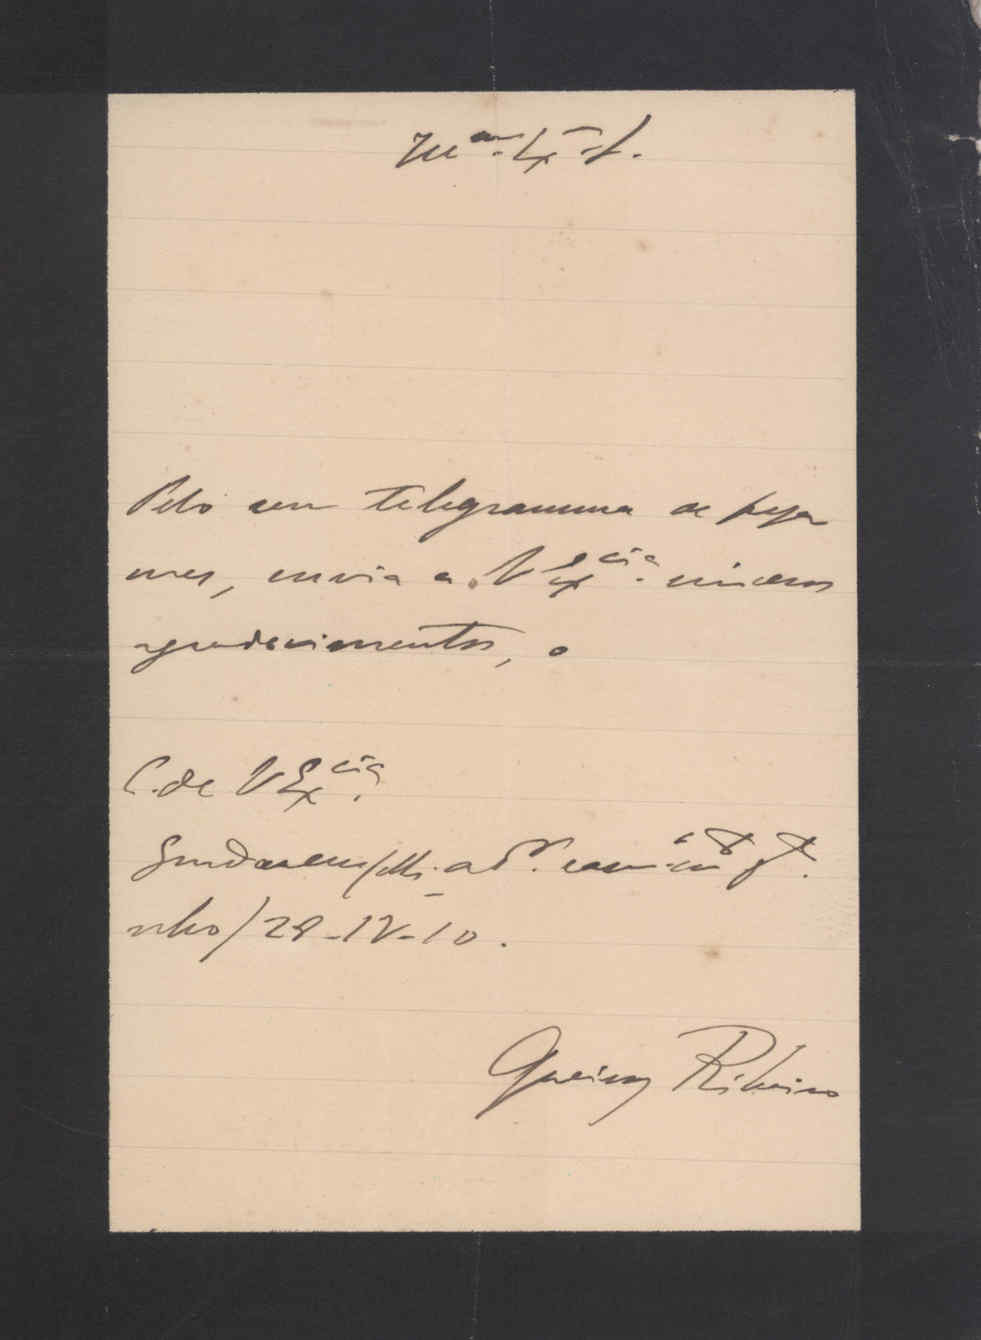 Ill^mo. Ex^mo. S.
Pelo seu telegramma de peza
mes, envia a V Ex^cia. sinceros
agradecimentos, o
C. de V Ex^cia.
nho/28-IV-10.
Queiroz Ribeiro